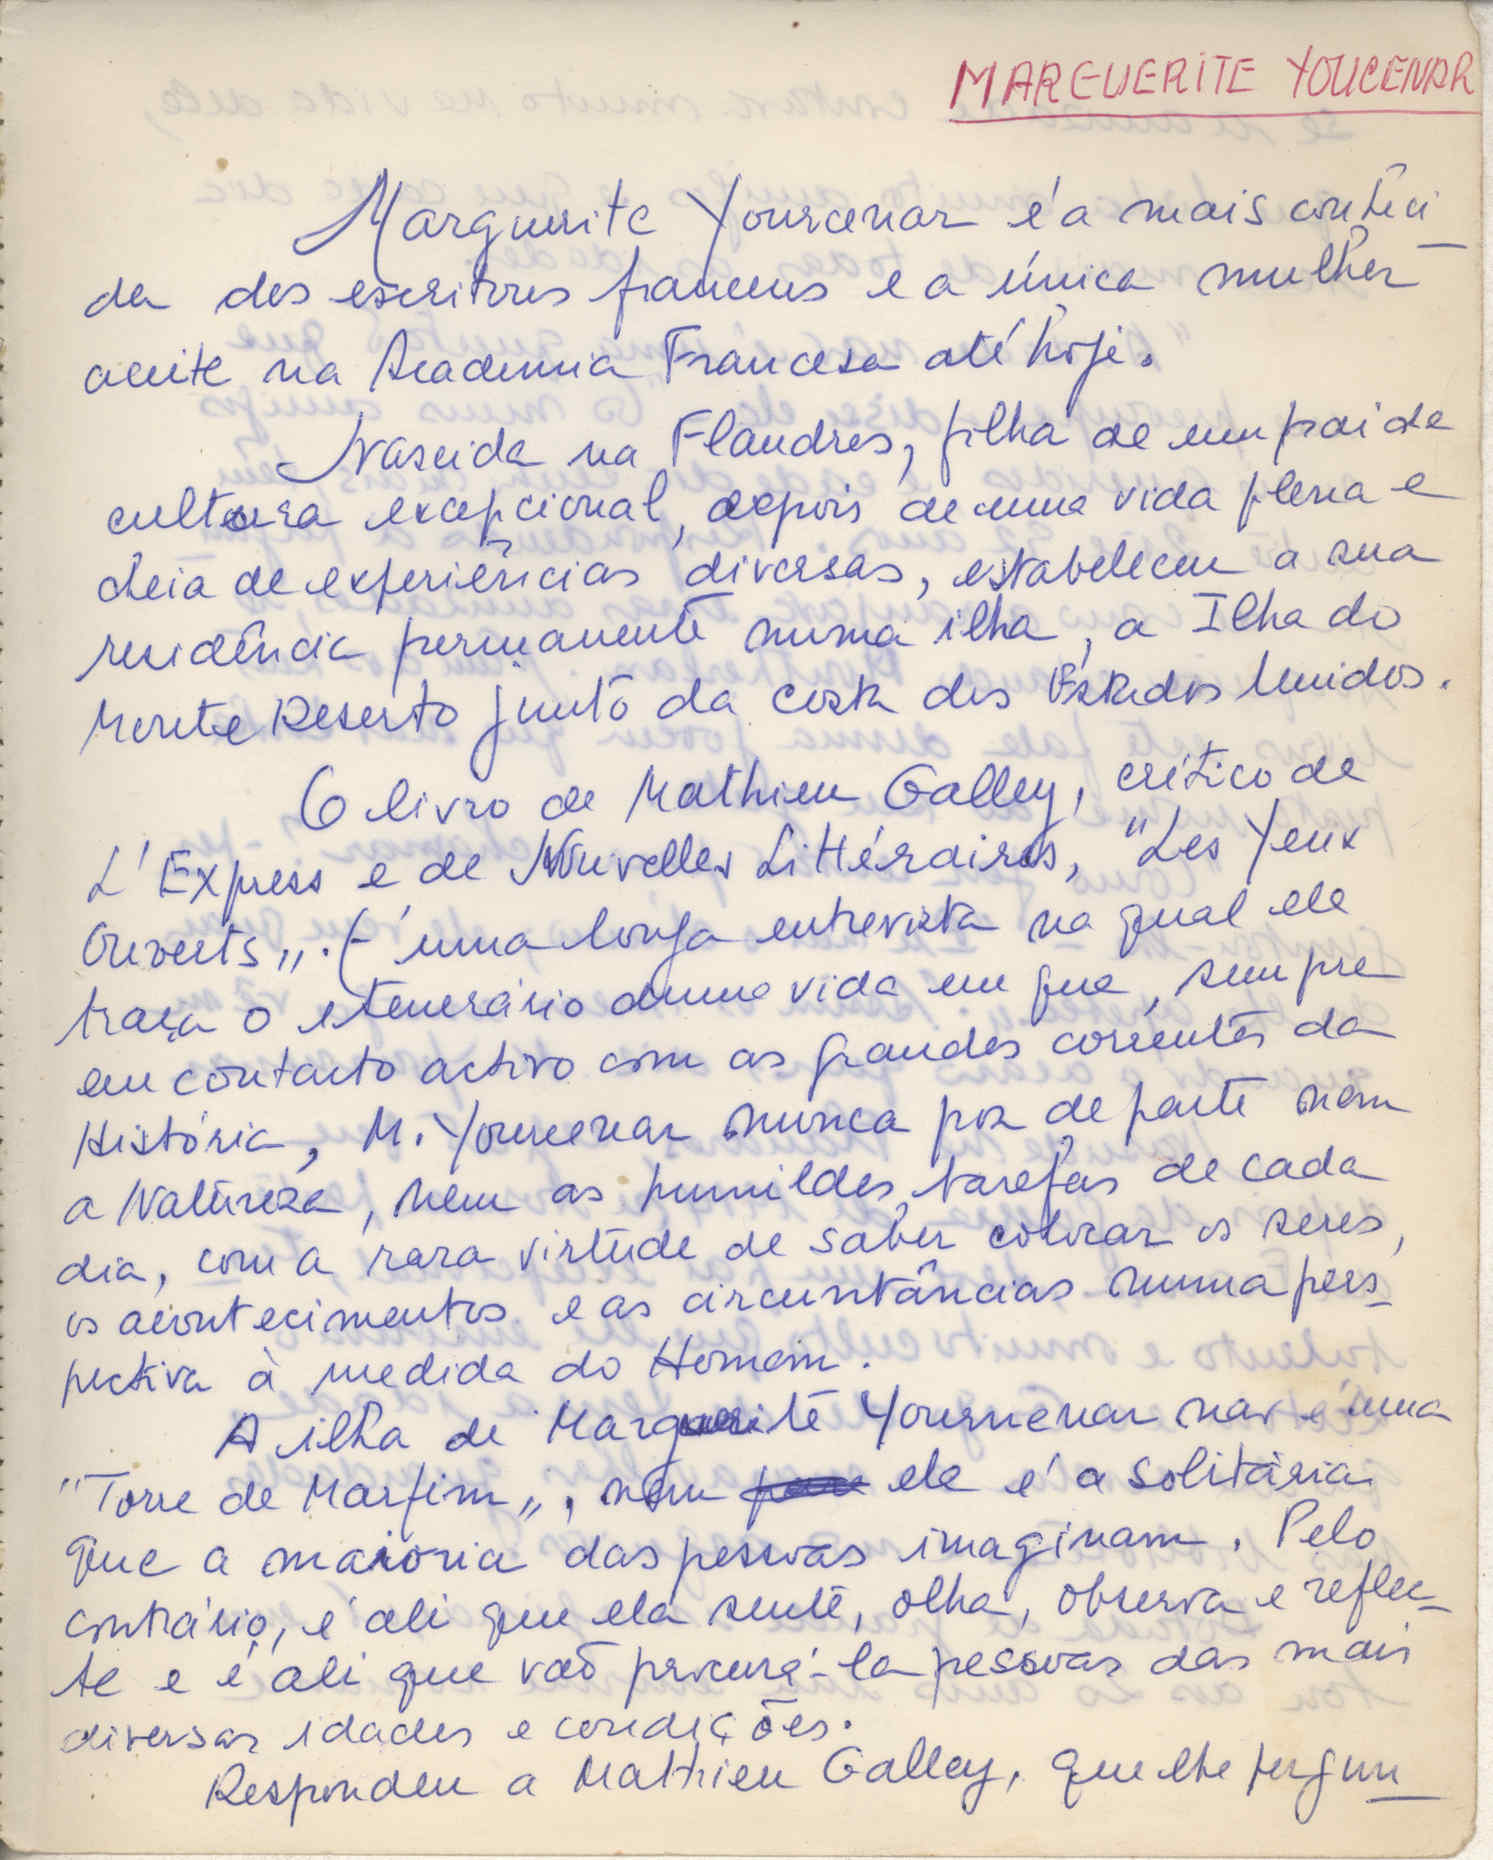 MARGUERITE YOUCENAR
Marguerite Yourcenar é a mais conheci_
da dos escritores franceses e a única mulher
aceite na Academia Francesa até hoje.
Nascida na Flandres, filha de um pai de
cultura excepcional, depois de uma vida plena e
cheia de experiências diversas, estabeleceu a sua
residência permanente numa ilha, a Ilha do
Monte Deserto junto da costa dos Estados Unidos.
O livro de Mathieu Galley, crítico de
L'Express e de Nouvelles Littéraires, "Les Yeux
Ouverts„. É uma longa entrevista na qual ele
traça o itenerário duma vida em que, sempre
em contacto activo com as grandes correntes da
História, M. Yourcenar nunca pos de parte nem
a Natureza, nem as humildes tarefas de cada
dia, com a rara virtude de saber colocar os seres,
os acontecimentos e as circuntâncias numa pers_
pectiva à medida do Homem.
A ilha de Marguerite Yourcenar não é uma
"Torre de Marfim„, nem ela é a solitária
que a maioria das pessoas imaginam. Pelo
contrário, é ali que ela sente, olha, observa e reflec_
te e é ali que vão procurá-la pessoas das mais
diversas idades e condições.
Respondeu a Mathieu Galley, que lhe pergun_